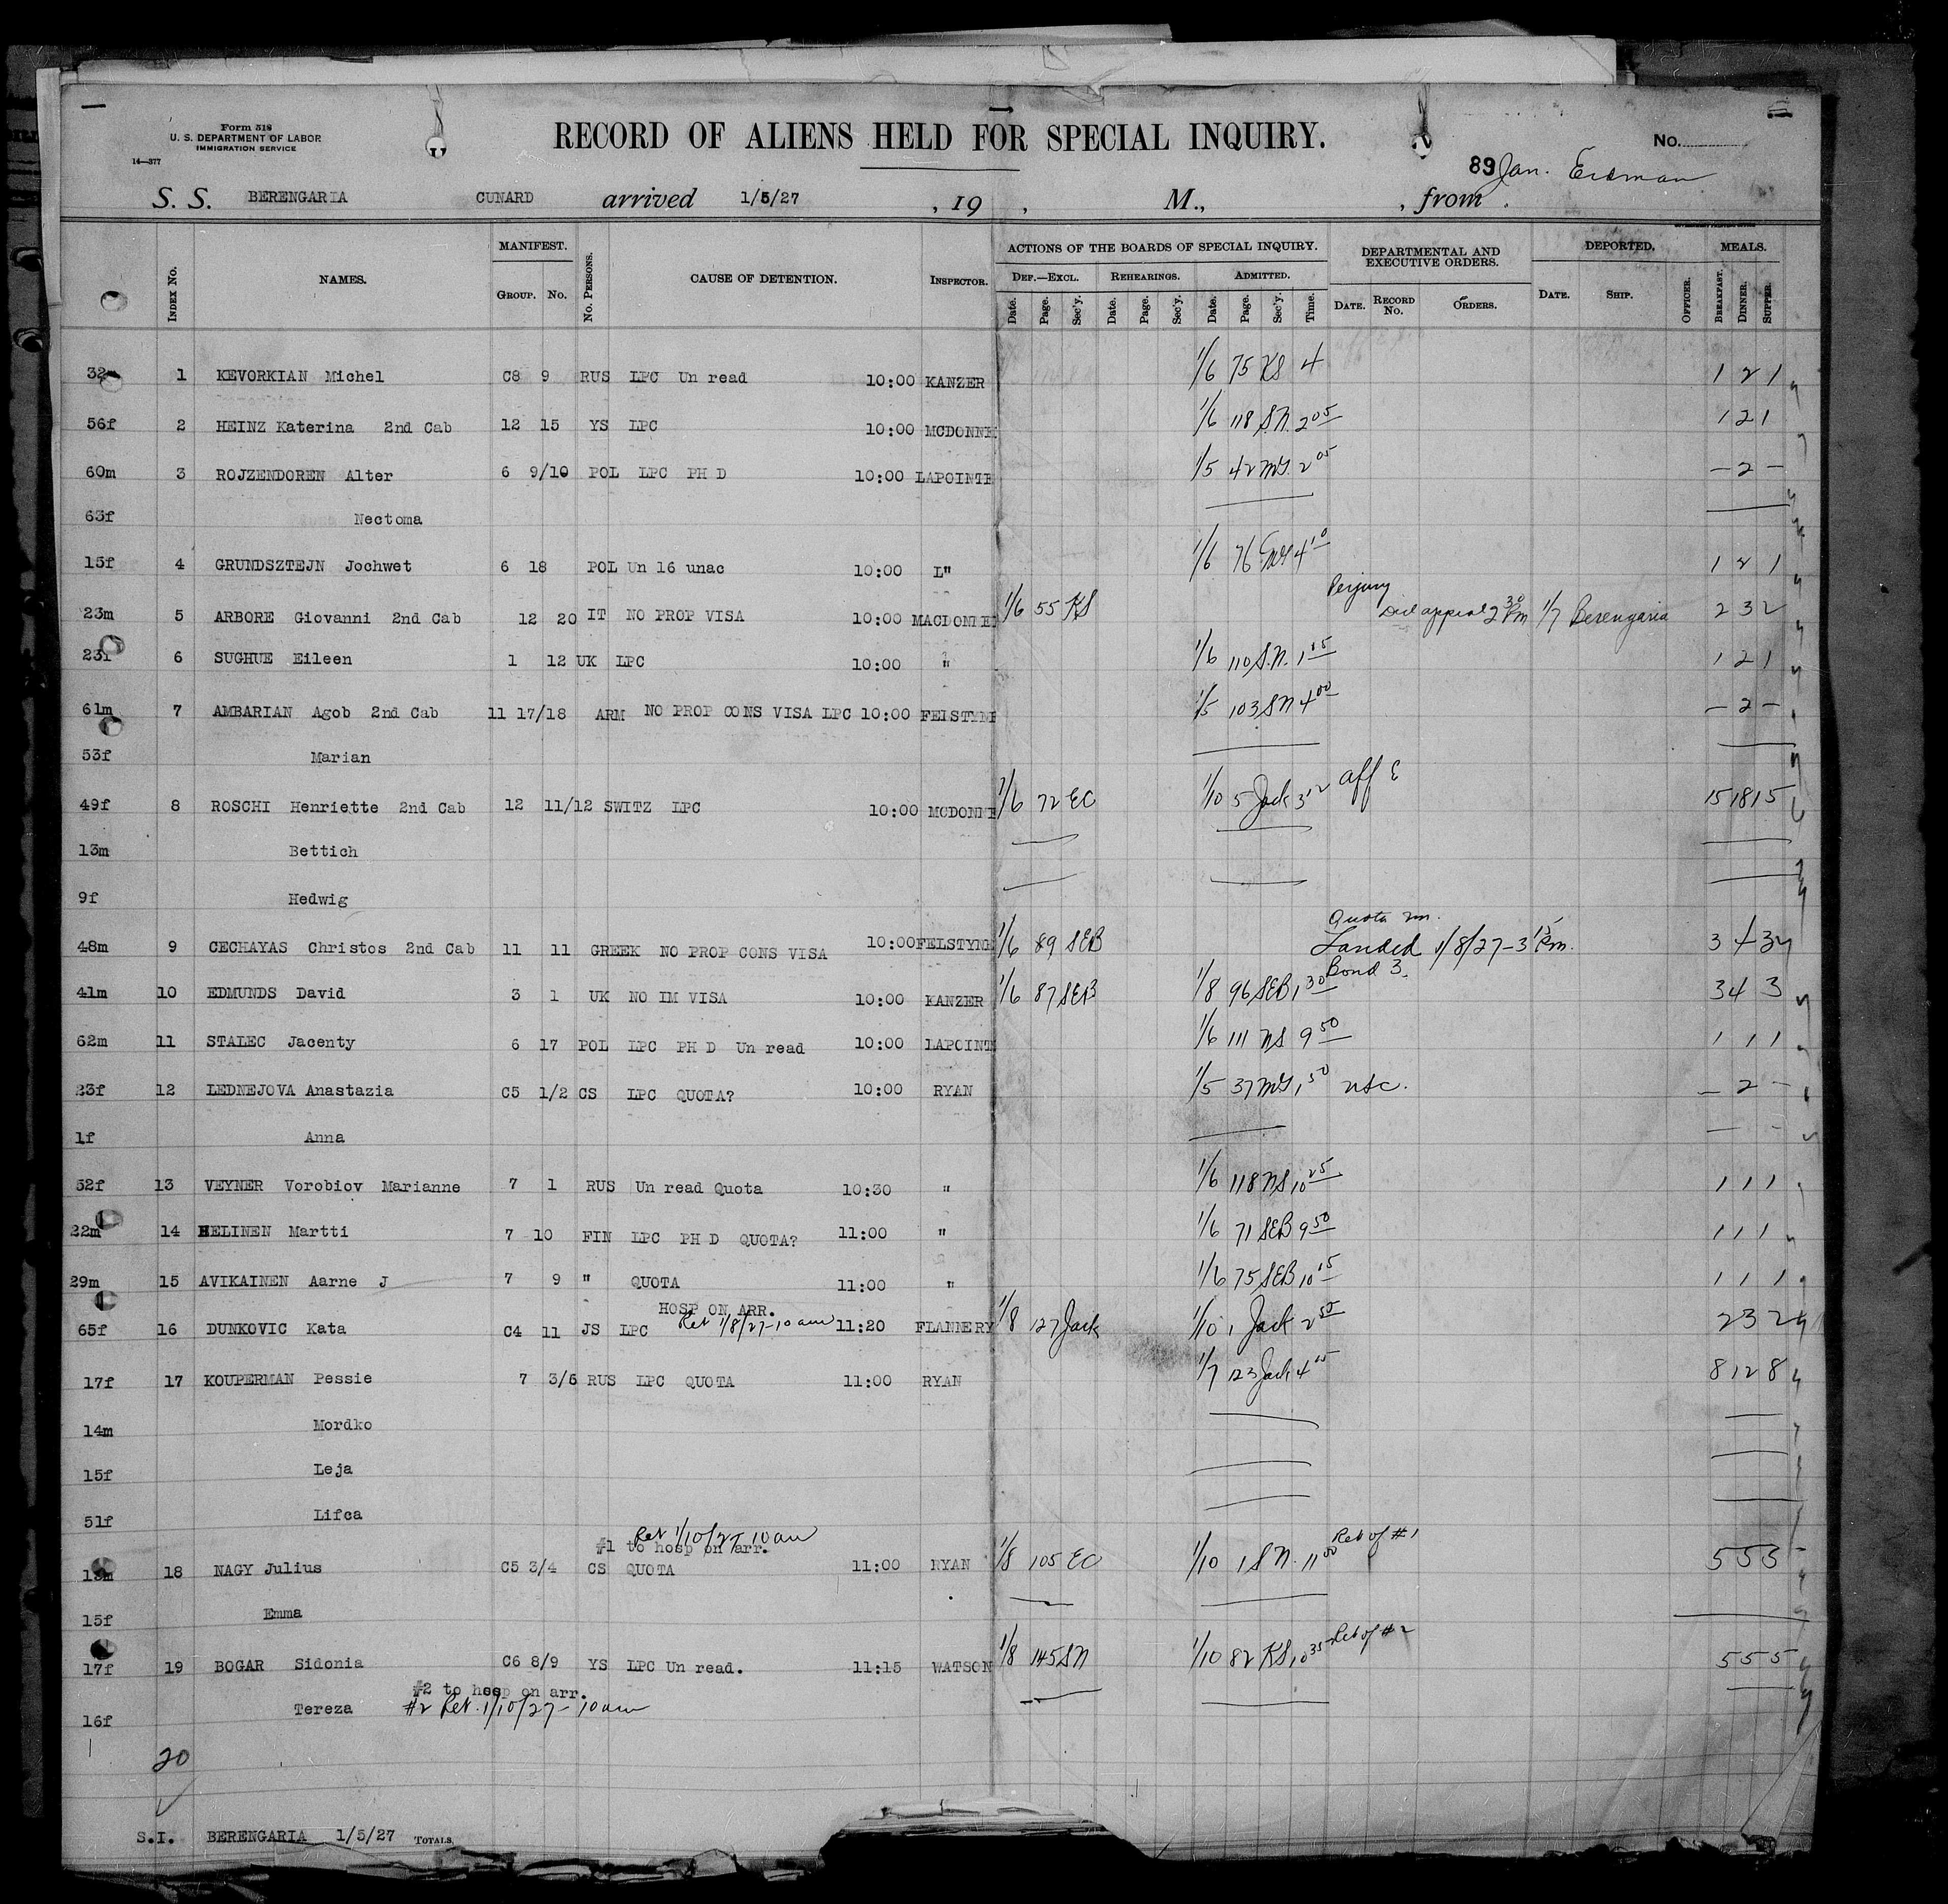 Form 518
U. S. DEPARTMENT OF LABOR
IMMIGRATION SERVICE
14—377
RECORD OF ALIENS HELD FOR SPECIAL INQUIRY.
No.
89 Jan. Erdman
S. S. BERENGARIA CUNARD arrived 1/5/27 , 19 , M., , from
INDEX No. NAMES. MANIFEST. GROUP. No. No. PERSONS. CAUSE OF DETENTION. INSPECTOR. ACTIONS OF THE BOARDS OF SPECIAL INQUIRY. DEPARTMENTAL AND EXECUTIVE ORDERS. DEPORTED. MEALS.
DEF.—EXCL. REHEARINGS. ADMITTED.
Date. Page. Sec'y. Date. Page. Sec'y. Date. Page. Sec'y. Time. DATE. RECORD No. ORDERS. DATE. SHIP. OFFICER. BREAKFAST. DINNER. SUPPER.
32m 1 KEVORKIAN Michel C8 9 RUS LPC Un read 10:00 KANZER 1/6 75 KS 4 1 2 1
56f 2 HEINZ Katerina 2nd Cab 12 15 YS LPC 10:00 MCDONNE 1/6 118 S.N. 2 05 1 2 1
60m 3 ROJZENDOREN Alter 6 9/10 POL LPC PH D 10:00 LAPOINTE 1/5 42 2 05 — 2 —
63f Nectoma
15f 4 GRUNDSZTEJN Jochwet 6 18 POL Un 16 unac 10:00 L" 1/6 76 4 10 1 2 1
23m 5 ARBORE Giovanni 2nd Cab 12 20 IT NO PROP VISA 10:00 MACDONNE 1/6 55 KS Perjury appeal 2 30 Pm 1/7 Berengaria 2 3 2
23f 6 SUGHUE Eileen 1 12 UK LPC 10:00 " 1/6 110 S.N. 1 2 1
61m 7 AMBARIAN Agob 2nd Cab 11 17/18 ARM NO PROP CONS VISA LPC 10:00 FELSTYNE 1/5 103 SN 4 00 — 2 —
53f Marian
49f 8 ROSCHI Henriette 2nd Cab 12 11/12 SWITZ LPC 10:00 MCDONNE 1/6 72 EC 1/10 5 Jack aff 15 18 15
13m Bettich
9f Hedwig
48m 9 CECHAYAS Christos 2nd Cab 11 11 GREEK NO PROP CONS VISA 10:00 FELSTYNE 1/6 89 SEB Quota Landed 1/8/27-3 15 Pm. 3 4 3
41m 10 EDMUNDS David 3 1 UK NO IM VISA 10:00 KANZER 1/6 87 SEB 1/8 96 SEB 1 30 Bond 3. 3 4 3
62m 11 STALEC Jacenty 6 17 POL LPC PH D Un read 10:00 LAPOINTE 1/6 111 NS 9 50 1 1 1
23f 12 LEDNEJOVA Anastazia C5 1/2 CS LPC QUOTA? 10:00 RYAN 1/5 37 1 50 — 2 —
1f Anna
52f 13 VEYNER Vorobiov Marianne 7 1 RUS Un read Quota 10:30 " 1/6 118 NS 10 25 1 1 1
22m 14 HELINEN Martti 7 10 FIN LPC PH D QUOTA? 11:00 " 1/6 71 SEB 9 50 1 1 1
29m 15 AVIKAINEN Aarne J 7 9 " QUOTA 11:00 " 1/6 75 SEB 10 15 1 1 1
HOSP ON ARR.
65f 16 DUNKOVIC Kata C4 11 JS LPC Ret 1/8/27-10 am 11:20 FLANNERY 1/8 127 Jack 1/10 1 Jack 2 50 2 3 2
17f 17 KOUPERMAN Pessie 7 3/6 RUS LPC QUOTA 11:00 RYAN 1/7 123 Jack 4 8 12 8
14m Mordko
15f Leja
51f Lifca
Ret 1/10/27 10 am
#1 to hosp on arr.
13m 18 NAGY Julius C5 3/4 CS QUOTA 11:00 RYAN 1/8 105 EC 1/10 1 S.N. 11 00 Ret of #1 5 5 5
15f Emma
17f 19 BOGAR Sidonia C6 8/9 YS LPC Un read. 11:15 WATSON 1/8 145 SN 1/10 82 KS 10 35 Ret of #2 5 5 5
#2 to hosp on arr.
16f Tereza #2 Ret. 1/10/27 - 10 am
20
S.I. BERENGARIA 1/5/27 TOTALS,